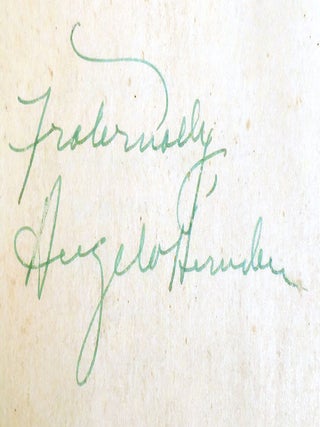 Fraternally
Angelo Herndon